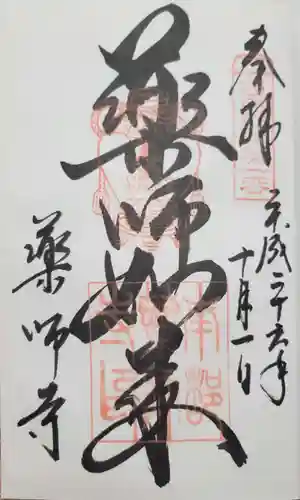 奉拝
平成二十六年
十月一日
薬師如来
薬師寺